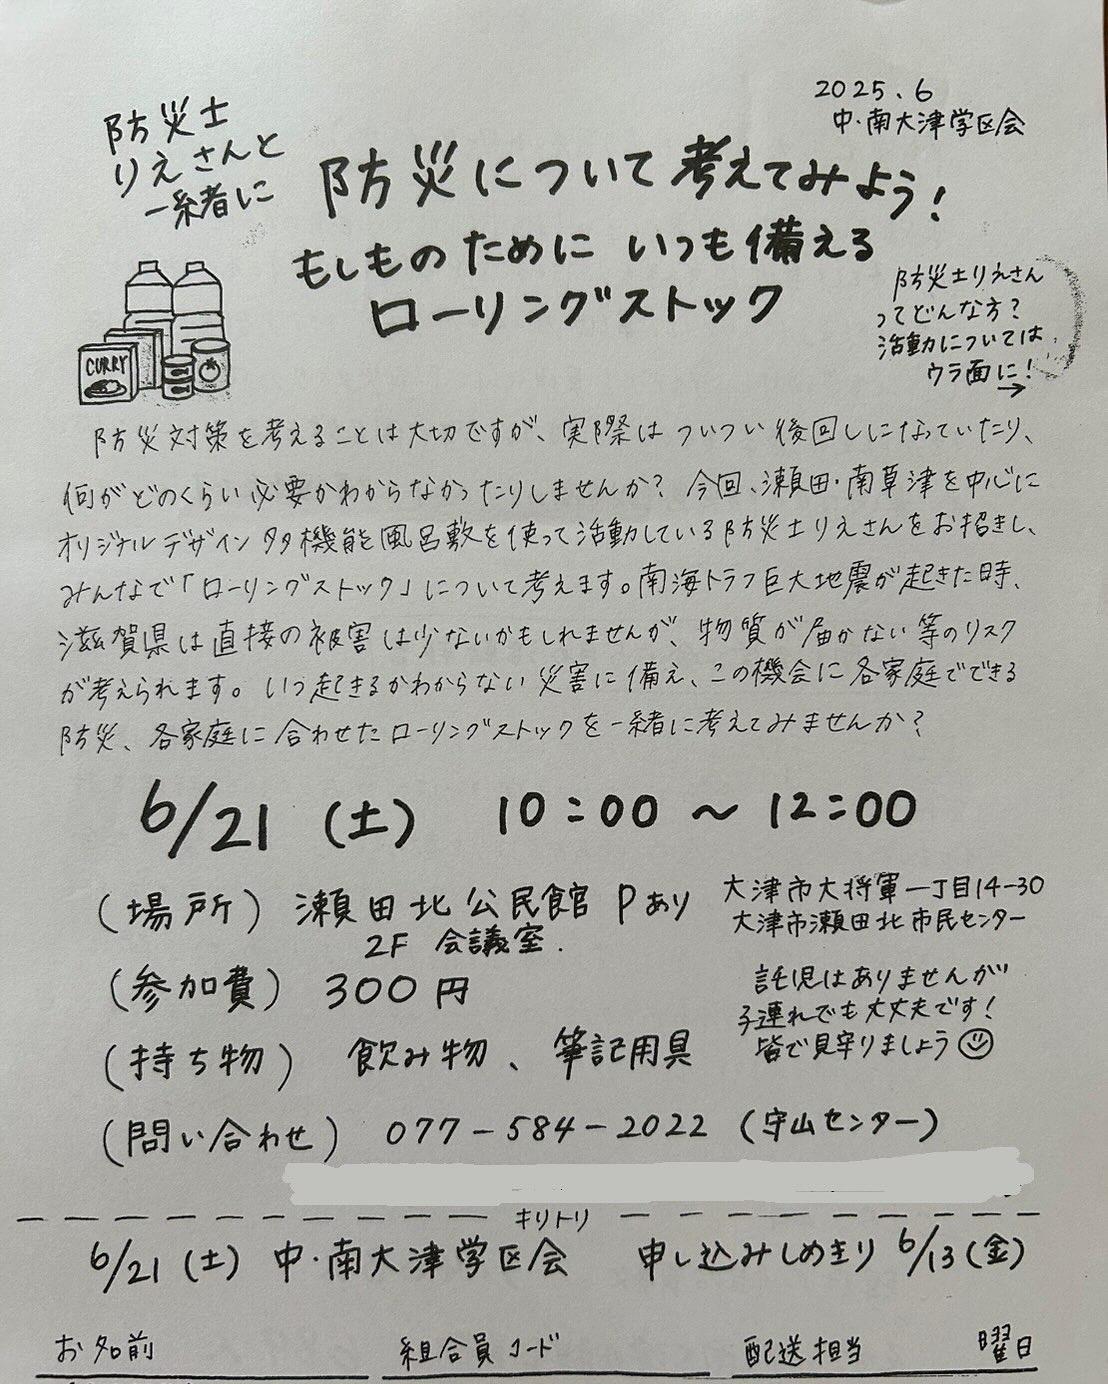 2025.6
中・南大津学区会
防災士
りえさんと
一緒に
防災について考えてみよう!
もしものために いつも備える
ローリングストック
防災士りえさん
ってどんな方?
活動については
ウラ面に!→
CURRY
防災対策を考えることは大切ですが、実際はついつい後回しになっていたり、
何がどのくらい必要かわからなかったりしませんか? 今回、瀬田・南草津を中心に
オリジナルデザイン多機能風呂敷を使って活動している防災士りえさんをお招きし、
みんなで「ローリングストック」について考えます。南海トラフ巨大地震が起きた時、
滋賀県は直接の被害は少ないかもしれませんが、物質が届かない等のリスク
が考えられます。いつ起きるかわからない災害に備え、この機会に各家庭でできる
防災、各家庭に合わせたローリングストックを一緒に考えてみませんか?
6/21 (土) 10:00 〜 12:00
(場所) 瀬田北公民館 Pあり
2F 会議室.
大津市大将軍一丁目14-30
大津市瀬田北市民センター
(参加費) 300円
託児はありませんが
子連れでも大丈夫です!
皆で見守りましょう☺
(持ち物) 飲み物、筆記用具
(問い合わせ) 077-584-2022 (守山センター)
キリトリ
6/21(土) 中・南大津学区会 申し込みしめきり 6/13(金)
お名前 組合員コード 配送担当 曜日